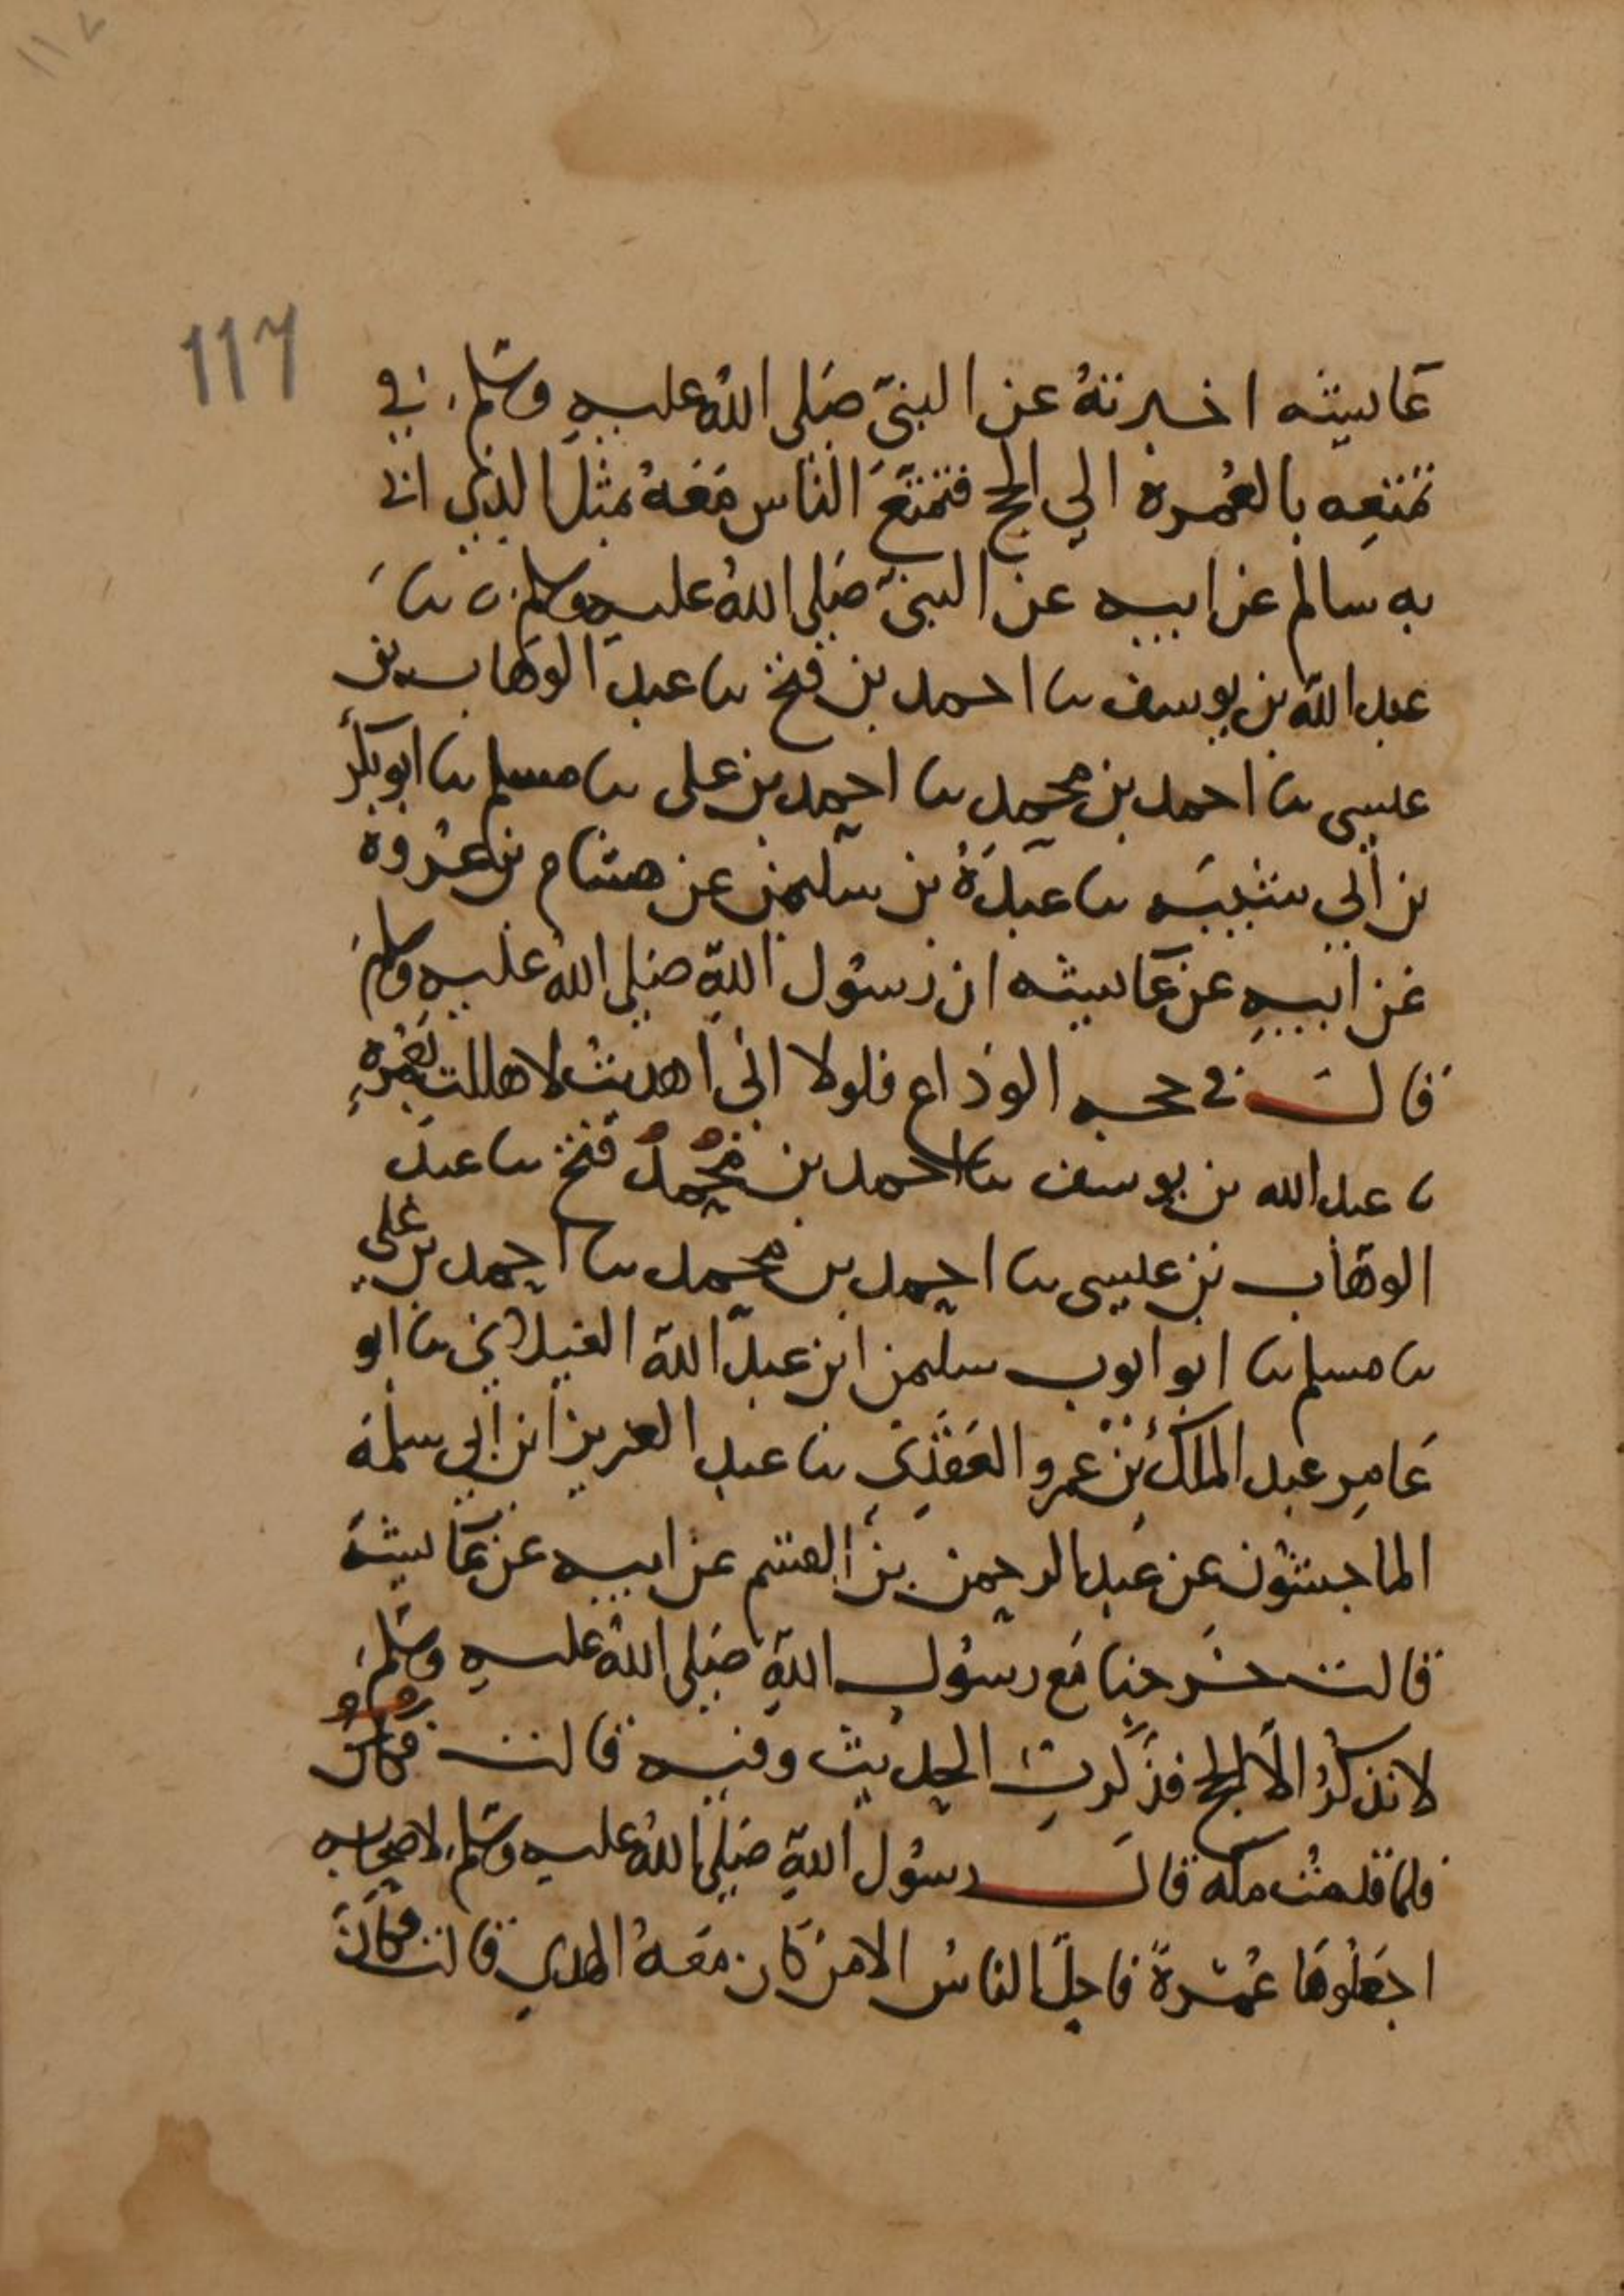 ١١٧
117
عاىيشه اخبرتهُ عن النبيّ صَلى اللهُ عليهِ وسَلم في
تمتعِه بالعُمره الي الحج فتمتعَ الناس مَعَهُ بمثل الذي انا
به سالم عن ابيه عن النبيّ صَلى اللهُ عليه وسلم ں نا
عبد الله بن يوسف نا احمد بن فتح نا عبد الوَهاب بن
عيسى نا احمد بن محمد نا احمد بن على نا مسلم نا ابو بكر
بن أبي شيبه نا عبدَةُ بن سليمن عن هشام بن عُروة
عن ابيهِ عن عَاىيشه ان رسُول اللهِ صَلى اللهُ عليهِ وسلم
قال في حجه الوَداع فلولا انى اهديتُ لاهللت بعُمرهٍ
نا عبد الله بن يوسف نا احمد بن مُحمدُ فتح نا عبد
الوهَاب بن عيسى نا احمد بن محمد نا احمد بن على
نا مسلم نا ابو ايوب سليمن ابن عبد الله الغيلاني نا ابو
عَامِر عبد الملكُ بْن عمرو العَقَدِى نا عبد العزيز ابن أبي سلمَة
الماجشُون عن عَبد الرحمن بن القسم عن ابيه عن عَاىيشة
قالت خَرجنا مَع رسُول اللهِ صَلى اللهُ عليهِ وسَلم
لا نذكُرُ الّا الحج فذَكرتِ الحديث وفيه قالت فكان
فلما قدمتُ مكه قال رسُول اللهِ صَلى اللهُ عليه وسَلم لاصحابه
اجعَلُوهَا عُمْرةً فاحلّ الناسُ الا من كَان مَعَهُ الهدي قالت فكانَ